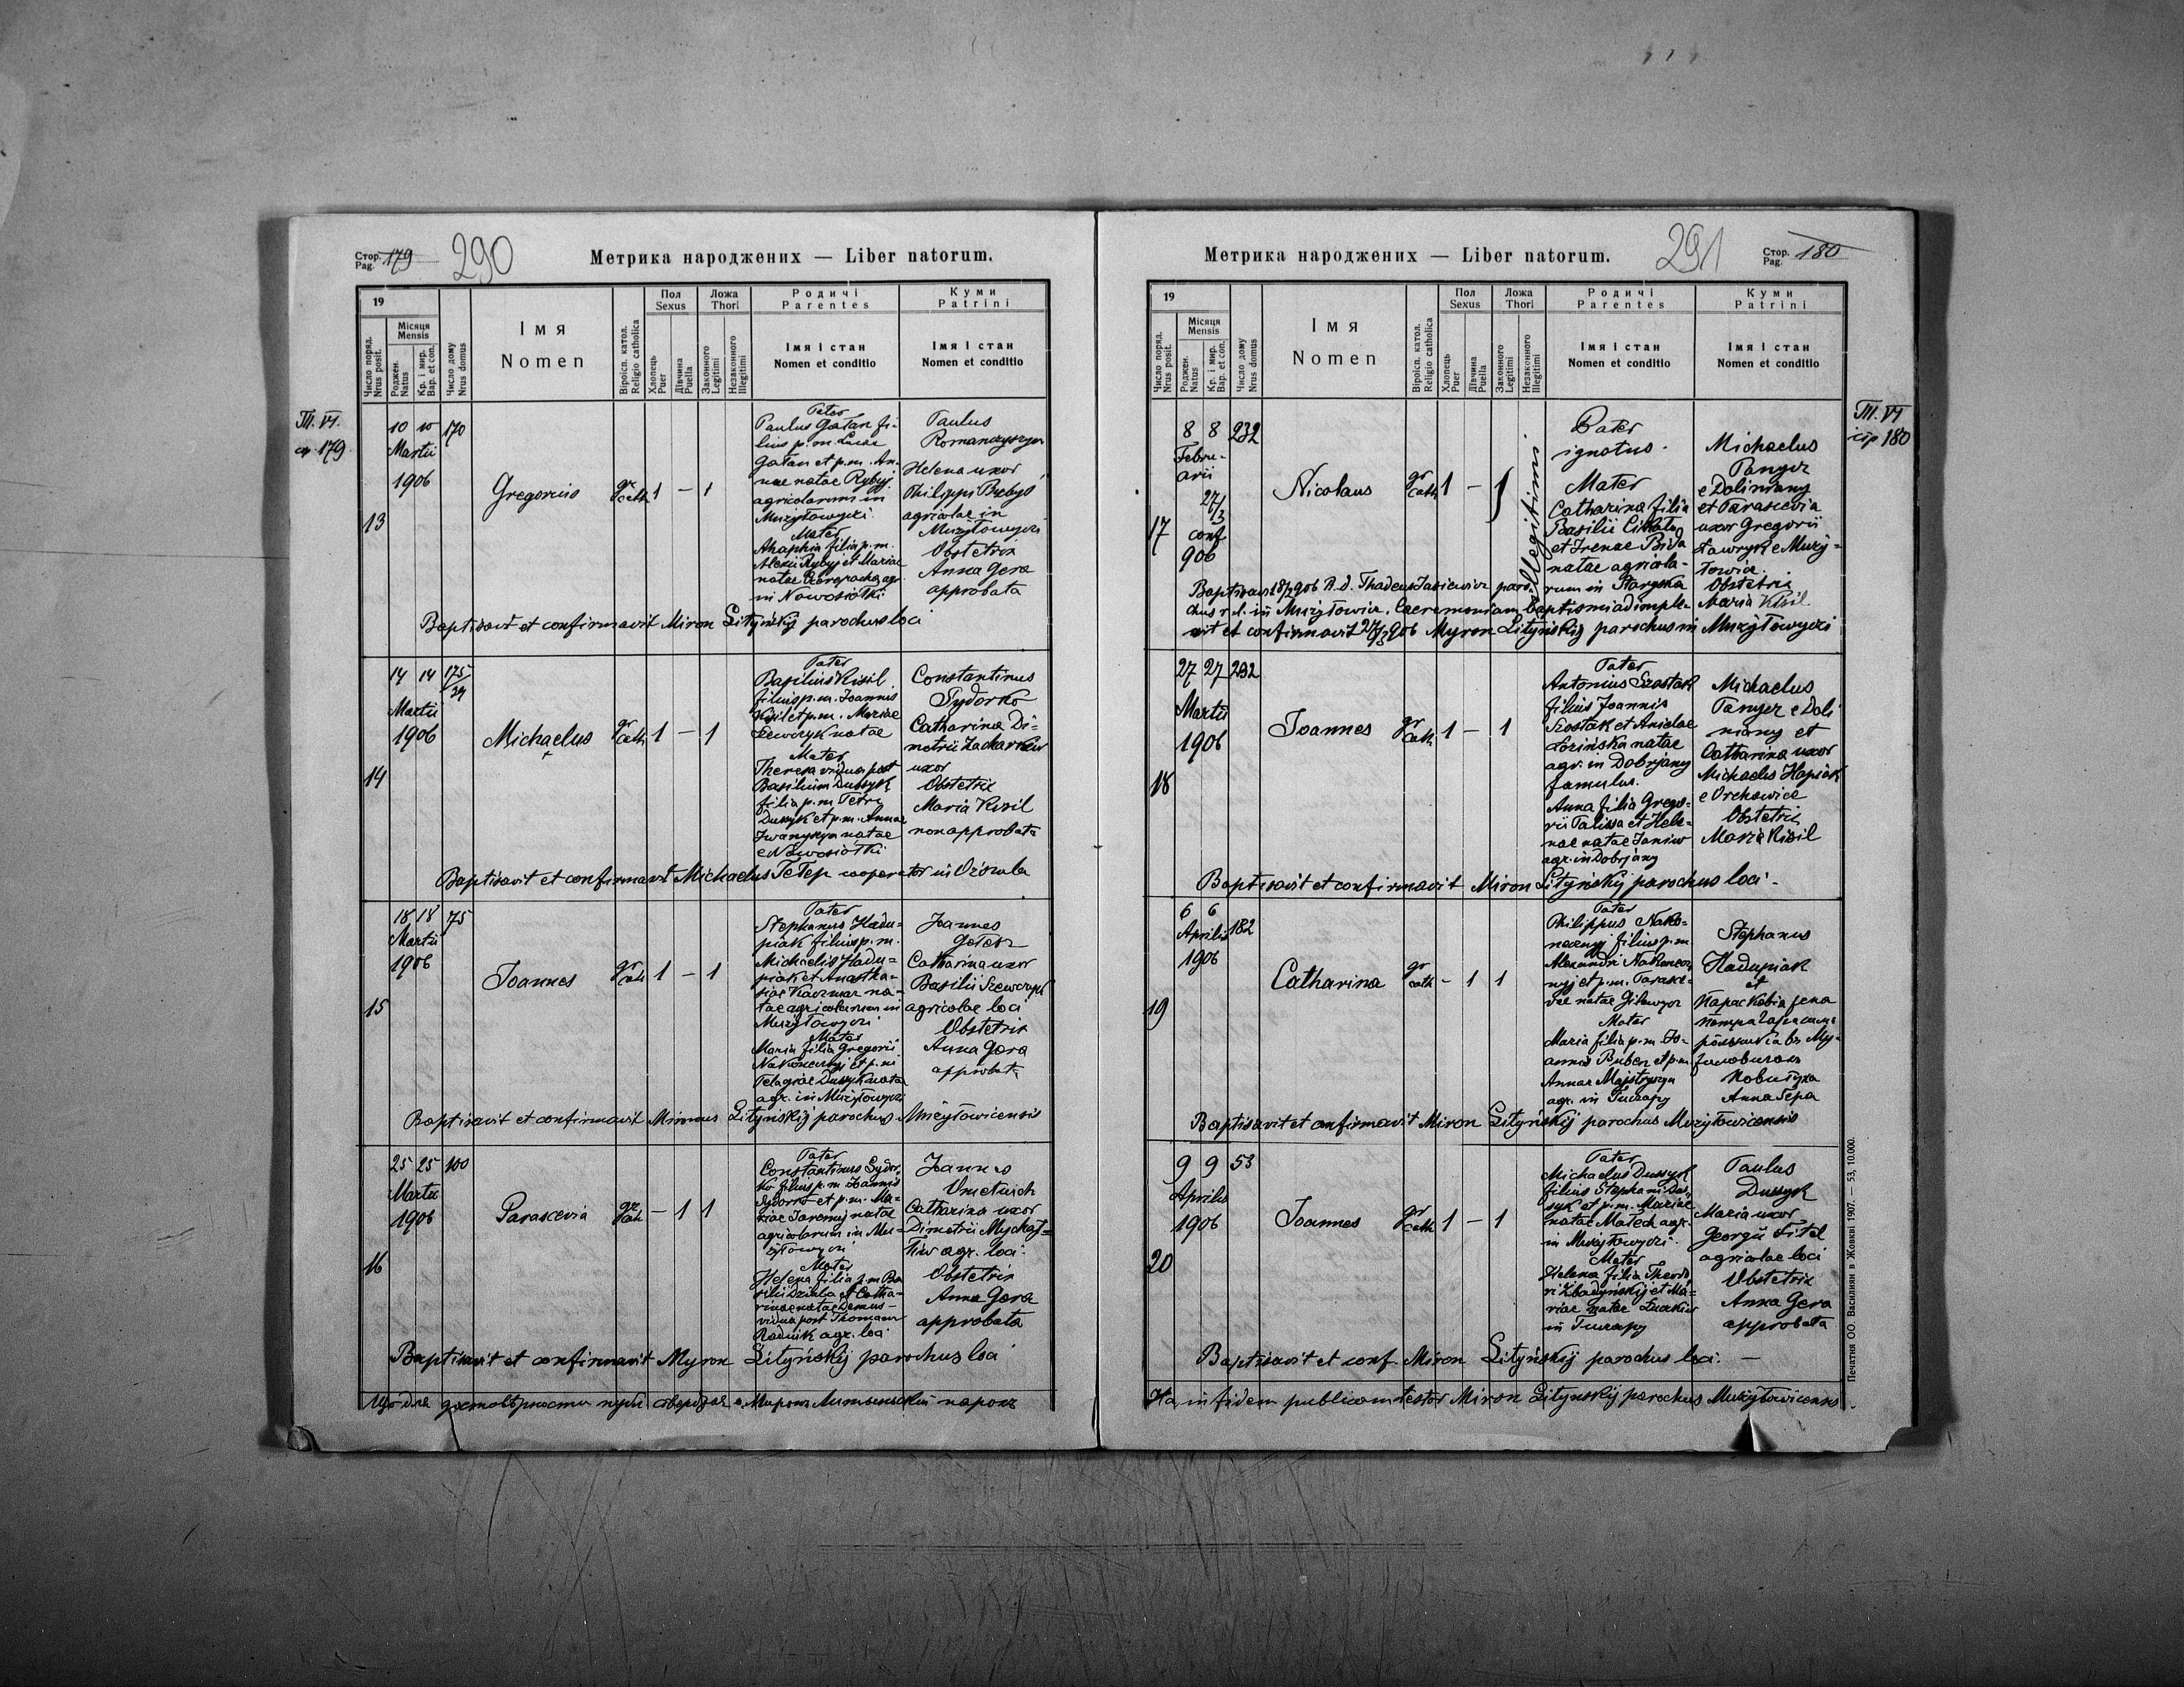 Стор. Pag. 179
290
Метрика народжених — Liber natorum.
19
Число поряд. Nrus posit.
Місяця Mensis
Роджен. Natus
Кр. і мир. Bap. et con.
Число дому Nrus domus
Імя
Nomen
Віроісп. катол. Religio catholica
Пол Sexus
Хлопець Puer
Дівчина Puella
Ложа Thori
Законного Legitimi
Незаконного Illegitimi
Родичі
Parentes
Імя і стан
Nomen et conditio
Куми
Patrini
Імя і стан
Nomen et conditio
Т. VI.
ст. 179
13
10 10 170
Martii
1906
Gregorius
gr cath 1 — 1
Pater
Paulus Gałan fi-
lius p.m. Lucae
Gałan et p.m. An-
nae natae Rybyj
agricolarum in
Mużyłowyczi
Mater
Ahaphia filia p.m.
Alexii Rybyj et Mariae
natae
in Nowosiółki
Paulus
Romanczyszyn
Helena uxor
Philippi
agricolae in
Mużyłowyczi
Obstetrix
Anna Gera
approbata
Baptisavit et confirmavit Miron Lityńskij parochus loci
14
14 14 175/24
Martii
1906
Michaelus
gr cath 1 — 1
Pater
Basilius Kisil
filius p.m. Joannis
Kisil et p.m. Mariae
Szewczyk natae
Mater
Theresa vidua post
Basilium Dussyk
filia p.m. Petri
Dussyk et p.m. Annae
natae
e Nowosiółki
Constantinus
Sydorko
Catharina Di-
metrii Zacharkiw
uxor
Obstetrix
Maria Kisil
non approbata
Baptisavit et confirmavit Michaelus cooperator in
15
18 18 75
Martii
1906
Joannes
gr cath 1 — 1
Pater
Stephanus Hadu-
piak filius p.m.
Michaelis Hadu-
piak et Anastha-
siae Kaczmar na-
tae agricolarum in
Mużyłowyczi
Mater
Maria filia Gregorii
Nakonecznyj et p.m.
Pelagiae Dussyk natae
agr. in Mużyłowyczi
Joannes
Catharina uxor
Basilii Szewczyk
agricolae loci
Obstetrix
Anna Gera
approbata
Baptisavit et confirmavit Mironus Lityńskij parochus Mużyłowicensis
16
25 25 100
Martii
1906
Parascevia
gr. cath — 1 1
Pater
Constantinus Sydor-
ko filius p.m. Joannis
Sydorko et p.m. Ma-
riae Jaremij natae
agricolarum in Mu-
żyłowyczi
Mater
Helena filia p.m. Ba-
silii Dziuba et Catha-
rinae natae Demus —
vidua post Thomam
Radnik agr. loci
Joannes
Catharina uxor
Dimetrii Mychaj-
liw agr. loci
Obstetrix
Anna Gera
approbata
Baptisavit et confirmavit Myron Lityńskij parochus loci
Що для
Стор. Pag. 180
291
Метрика народжених — Liber natorum.
19
Число поряд. Nrus posit.
Місяця Mensis
Роджен. Natus
Кр. і мир. Bap. et con.
Число дому Nrus domus
Імя
Nomen
Віроісп. катол. Religio catholica
Пол Sexus
Хлопець Puer
Дівчина Puella
Ложа Thori
Законного Legitimi
Незаконного Illegitimi
Родичі
Parentes
Імя і стан
Nomen et conditio
Куми
Patrini
Імя і стан
Nomen et conditio
Т. VI
стр 180
17
8 8 232
Febru-
arii
27/3
conf
906
Nicolaus
gr cath 1 — 1
illegitimi
Pater
ignotus.
Mater
Catharina filia
Basilii
et Irenae Bida
natae agricola-
rum in Staryska
Michaelus
Panyrz
e Doliniany
et Parascevia
uxor Gregorii
Ławryk e Muży-
łowice.
Obstetrix
Maria Kisil
Baptisavit 906 R.d. Thadeus paro-
chus r.l. in Mużyłowice. Caeremoniam baptismi adimple-
vit et confirmavit 27/3 906 Myron Lityńskij parochus in Mużyłowyczi
18
27 27 232
Martii
1906
Joannes
gr cath 1 — 1
Pater
Antonius Szostak
filius Joannis
Szostak et Anielae
Łozińska natae
agr. in Dobrjany
famulus.
Anna filia Grego-
rii Palissa et Hele-
nae natae Janiw
agr. in Dobrjany
Michaelus
Panyrz e Doli
niany et
Catharina uxor
Michaelis Hapiak
e Orchowice
Obstetrix
Maria Kisil
Baptisavit et confirmavit Miron Lityńskij parochus loci.
19
6 6 182
Aprilis
1906
Catharina
gr cath — 1 1
Pater
Philippus Nako-
necznyj filius p.m.
Alexandri Nakonecz-
nyj et p.m. Parasce-
viae natae
Mater
Maria filia p.m. Jo-
annis Buben et p.m.
Annae Majstryszyn
agr. in Tuczapy
Stephanus
Hadupiak
et
Параскевія жена
Петра
Повитуха
Анна Гера
Baptisavit et confirmavit Miron Lityńskij parochus Mużyłowicensis
20
9 9 53
Aprilis
1906
Joannes
gr cath 1 — 1
Pater
Michaelus Dussyk
filius Stephani Dus-
syk et p.m. Mariae
natae Małech agr.
in Mużyłowyczi.
Mater
Helena filia Theodo-
ri Zbadyńskij et Ma-
riae natae Łuckiw
in Tuczapy
Paulus
Dussyk
Maria uxor
Georgii Fitel
agricolae loci
Obstetrix
Anna Gera
approbata
Baptisavit et conf. Miron Lityńskij parochus loci. —
Ita in fidem publicam testor Miron Lityńskij parochus Mużyłowicensis.
Печатня ОО. Василиян в Жовкві 1907. — 53, 10.000.